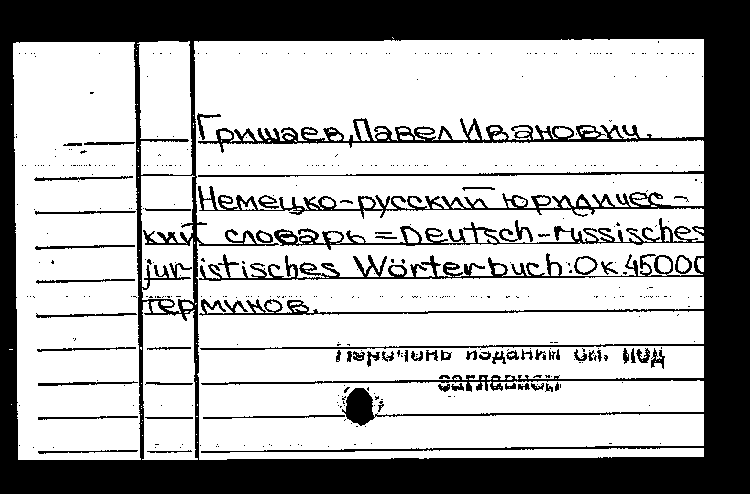 Гришаев, Павел Иванович.
Немецко-русский юридичес-
кий словарь = Deutsch-russisches
juristisches Wörterbuch: Ок. 45000
терминов.
Перечень изданий см. под
заглавием